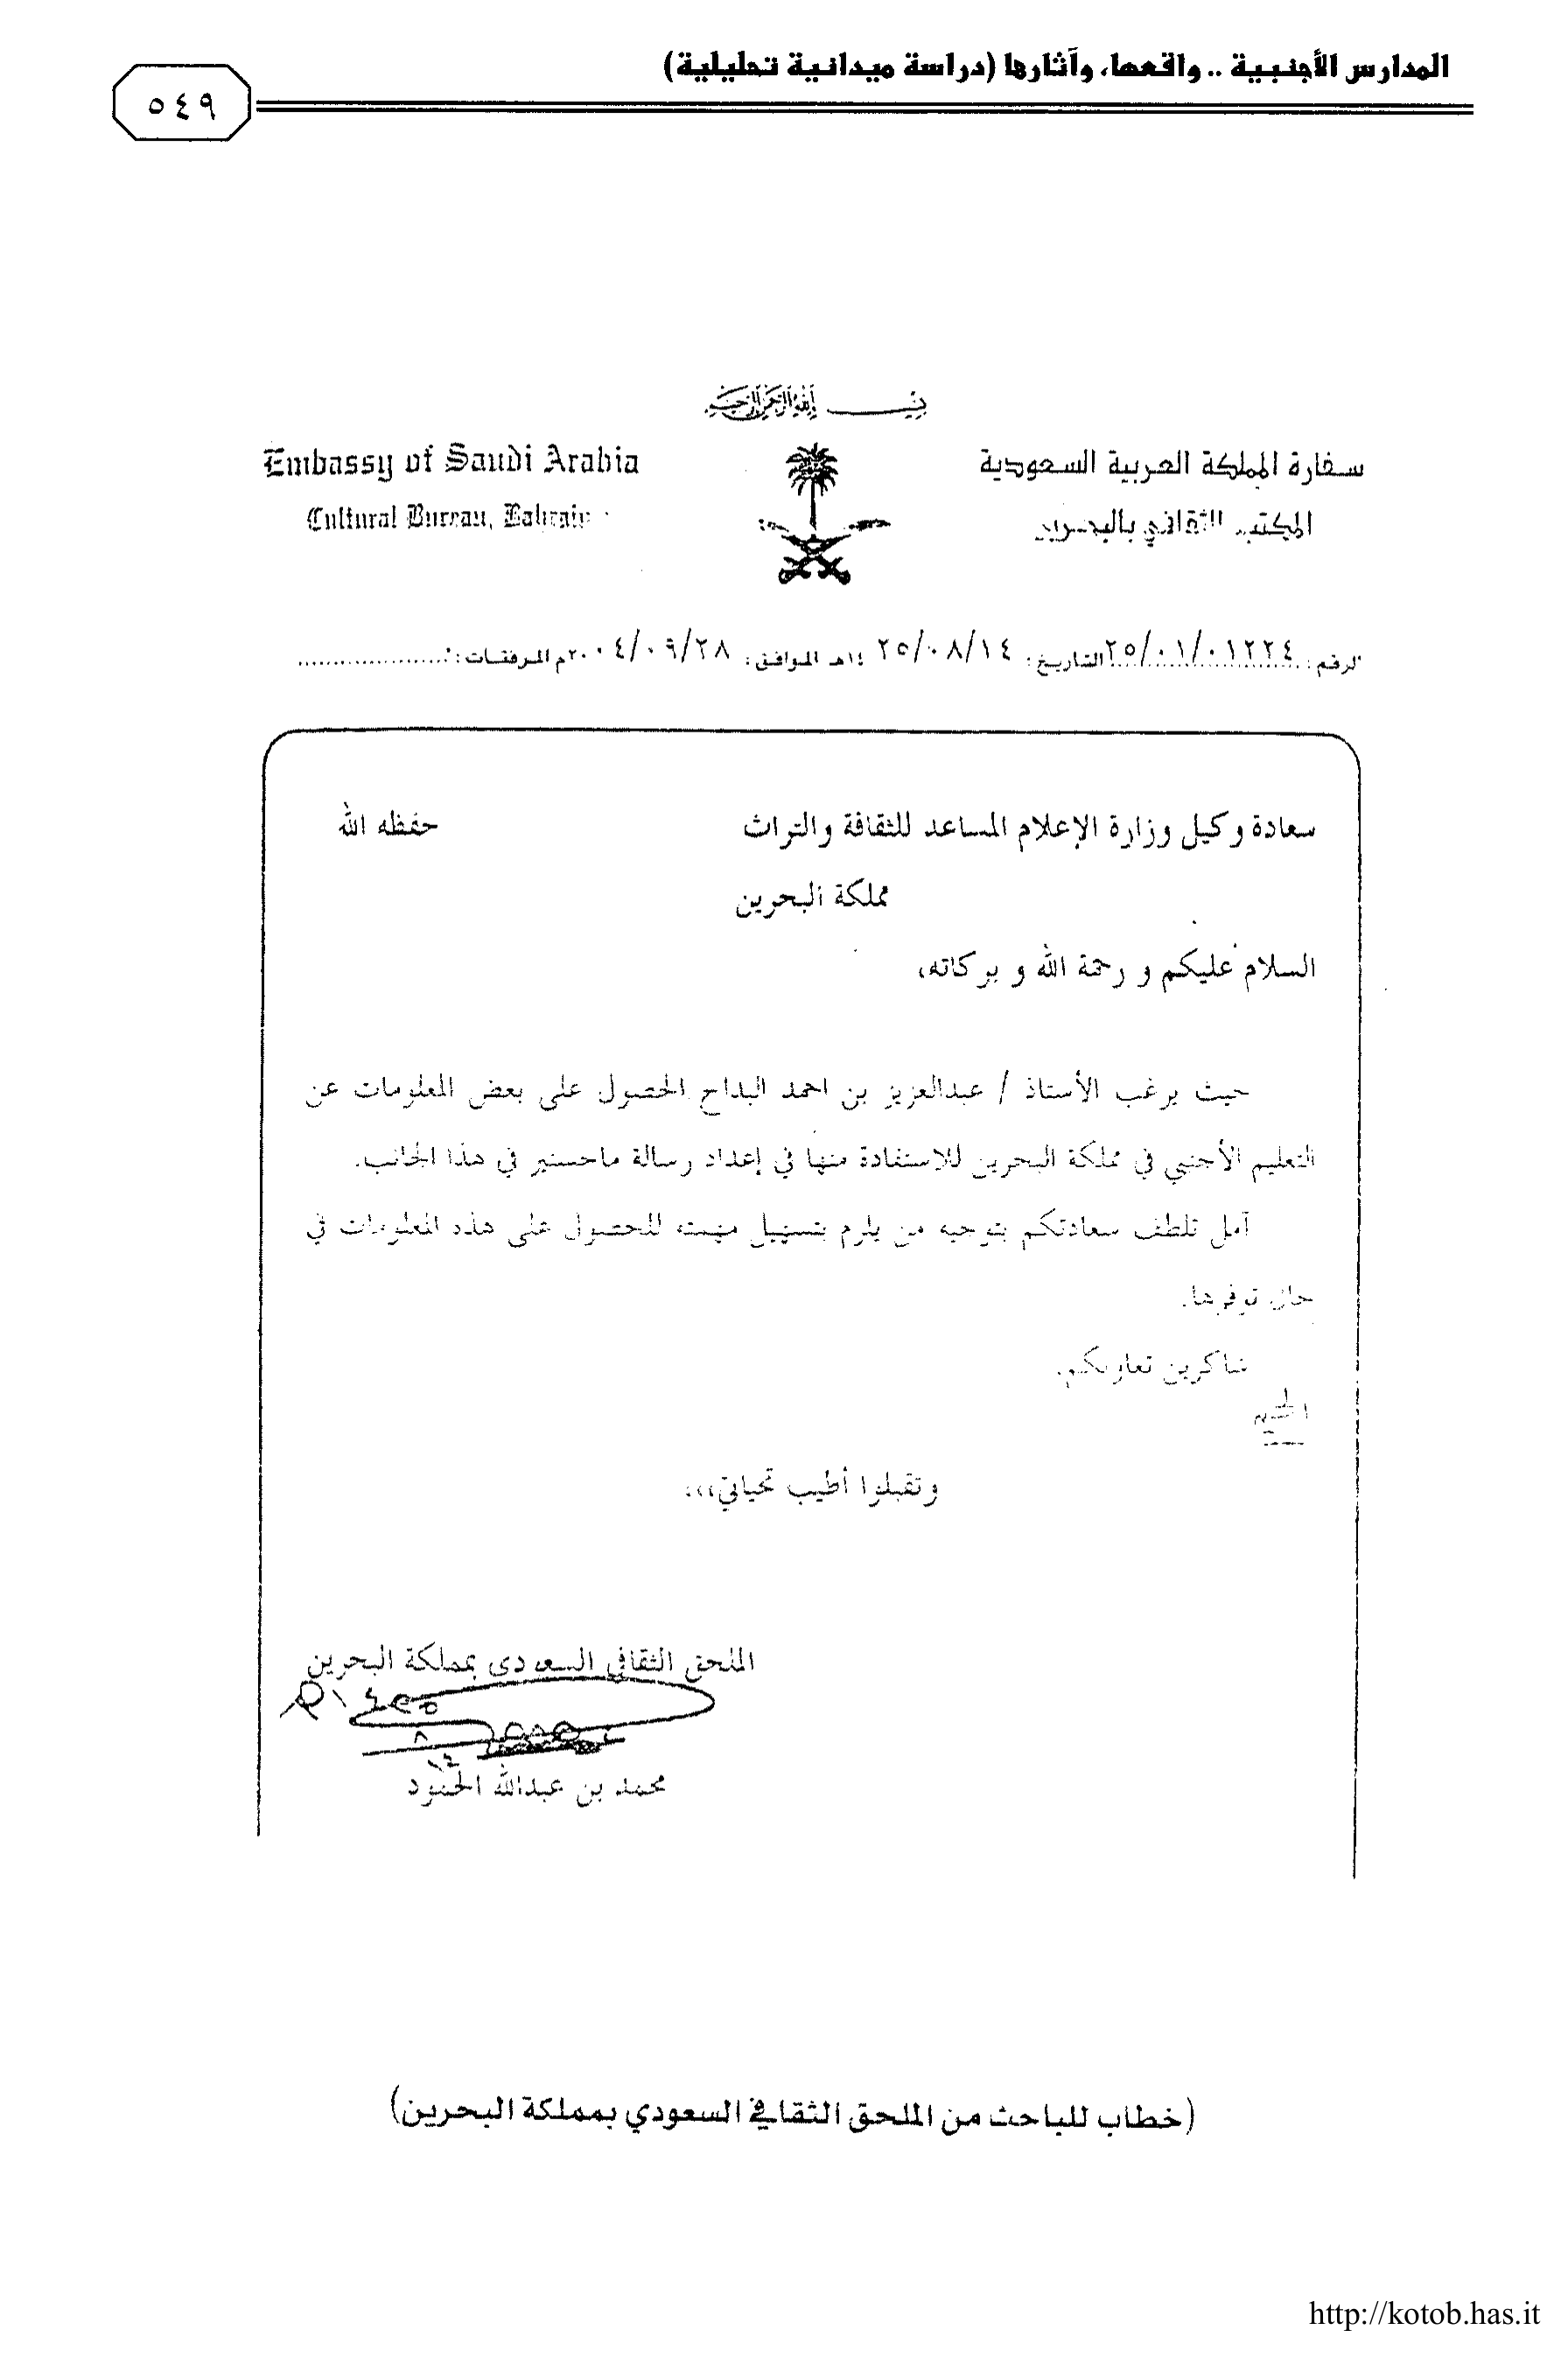 المدارس الأجنبية .. واقعها، وآثارها (دراسة ميدانية تحليلية)
٥٤٩
بسم الله الرحمن الرحيم
سفارة المملكة العربية السعودية
المكتب الثقافي بالبحرين
Embassy of Saudi Arabia
Cultural Bureau, Bahrain
الرقم: ٢٥/٠١/٠١٢٢٤ التاريخ: ٢٥/٠٨/١٤ ١٤هـ الموافق: ٢٠٠٤/٠٩/٢٨م المرفقات:
سعادة وكيل وزارة الإعلام المساعد للثقافة والتراث حفظه الله
مملكة البحرين
السلام عليكم و رحمة الله و بركاته،
حيث يرغب الأستاذ / عبدالعزيز بن احمد البداح الحصول على بعض المعلومات عن
التعليم الأجنبي في مملكة البحرين للاستفادة منها في إعداد رسالة ماجستير في هذا الجانب.
آمل تلطف سعادتكم بتوجيه من يلزم بتسهيل مهمته للحصول على هذه المعلومات في
حال توفرها.
شاكرين تعاونكم.
وتقبلوا أطيب تحياتي،،،
الملحق الثقافي السعودي بمملكة البحرين
محمد بن عبدالله الحمود
(خطاب للباحث من الملحق الثقافي السعودي بمملكة البحرين)
http://kotob.has.it